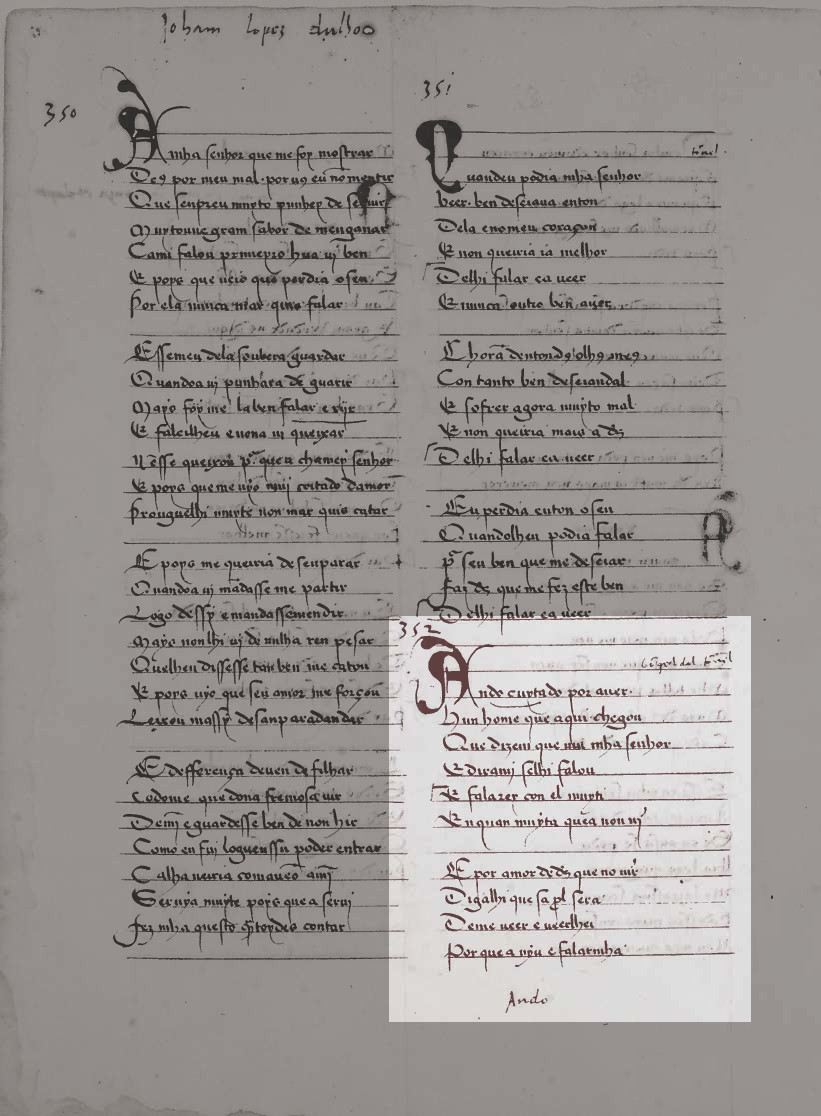 Joham Lopez dulhoa
350
A mha senhor que me foy mostrar
De9 por meu mal . por u9 eu nō mentir
Que senpreu muyto punhey de seruir
Muytouue gram sabor de menganar
Cami falou primeyro hua uj ben
E poys que uēio que perdia o sen
Por ela nunca mar quis falar
Essemeu dela soubera guardar
Quandoa uj punhara de guarir
Mays foy me la ben falar e rijr
E faleilheu e nona uj queixar
Nēsse queixou por que a chamey senhor
E poys que me uyo muj coitado damor
Prouguelhi muyte non mar quis catar
E poys me queiria desenparar
Quandoa uj mādasse me partir
Logo dessy e mandassemendir
Mays non lhi uj de nulha ren pesar
Quelheu dissesse tan ben me catou
E poys uyo que seu amor me forçou
Leixou massy desanparadandar
E defferença deuen de filhar
todome que dona fremosa uir
Demj e guardesse ben de non hir
Como eu fuj loguenssu poder entrar
Calha ueiria comaueō amj
Seruya muyte poys que a seruj
fez mha questo oytoydes contar
351
Quandeu podia mha senhor
veer . ben deseiaua enton
Dela eno meu coraçon
E non queiria ia melhor
Delhi falar e a ueer
E nunca outro ben auer
Chorā denton 9 olh9 me9
Con tanto ben deseiandal
E sofrer agora muyto mal
E non queiria mais a ds
Delhi falar e a ueer
Eu perdia enton o sen
Quandolheu podia falar
por seu ben que me deseiar
faz ds que me fez este ben
Delhi falar e a ueer
352
Ando cuytado por auer
hun home que aqui chegou
Que dizem que uiu mha senhor
E dirami selhi falou
E falarey con el muyti
En quan muyta que a non uj
E por amor de ds que no uir
Digalhi que sa prol sera
Deme ueer e ueerlhei
Por que a uyu e falarmha
Ando